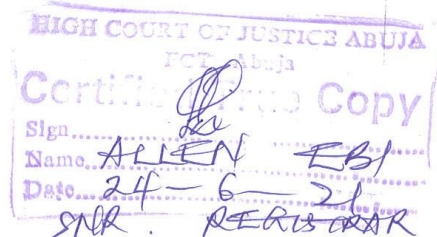 HIGH COURT OF JUSTICE ABUJA
FCT Abuja
Certified True Copy
Sign......
Name ALLEN EBI
Date 24-6-21
SNR. REGISTRAR